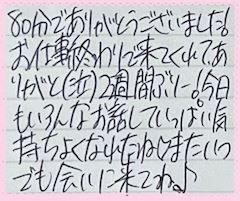 80分でありがとうございました!
お仕事終わりで来てくれてあ
りがと(泣)2週間ぶりに!今日
もいろんなお話していっぱい気
持ちよくなれたねじまたいつ
でも会いに来てね♪